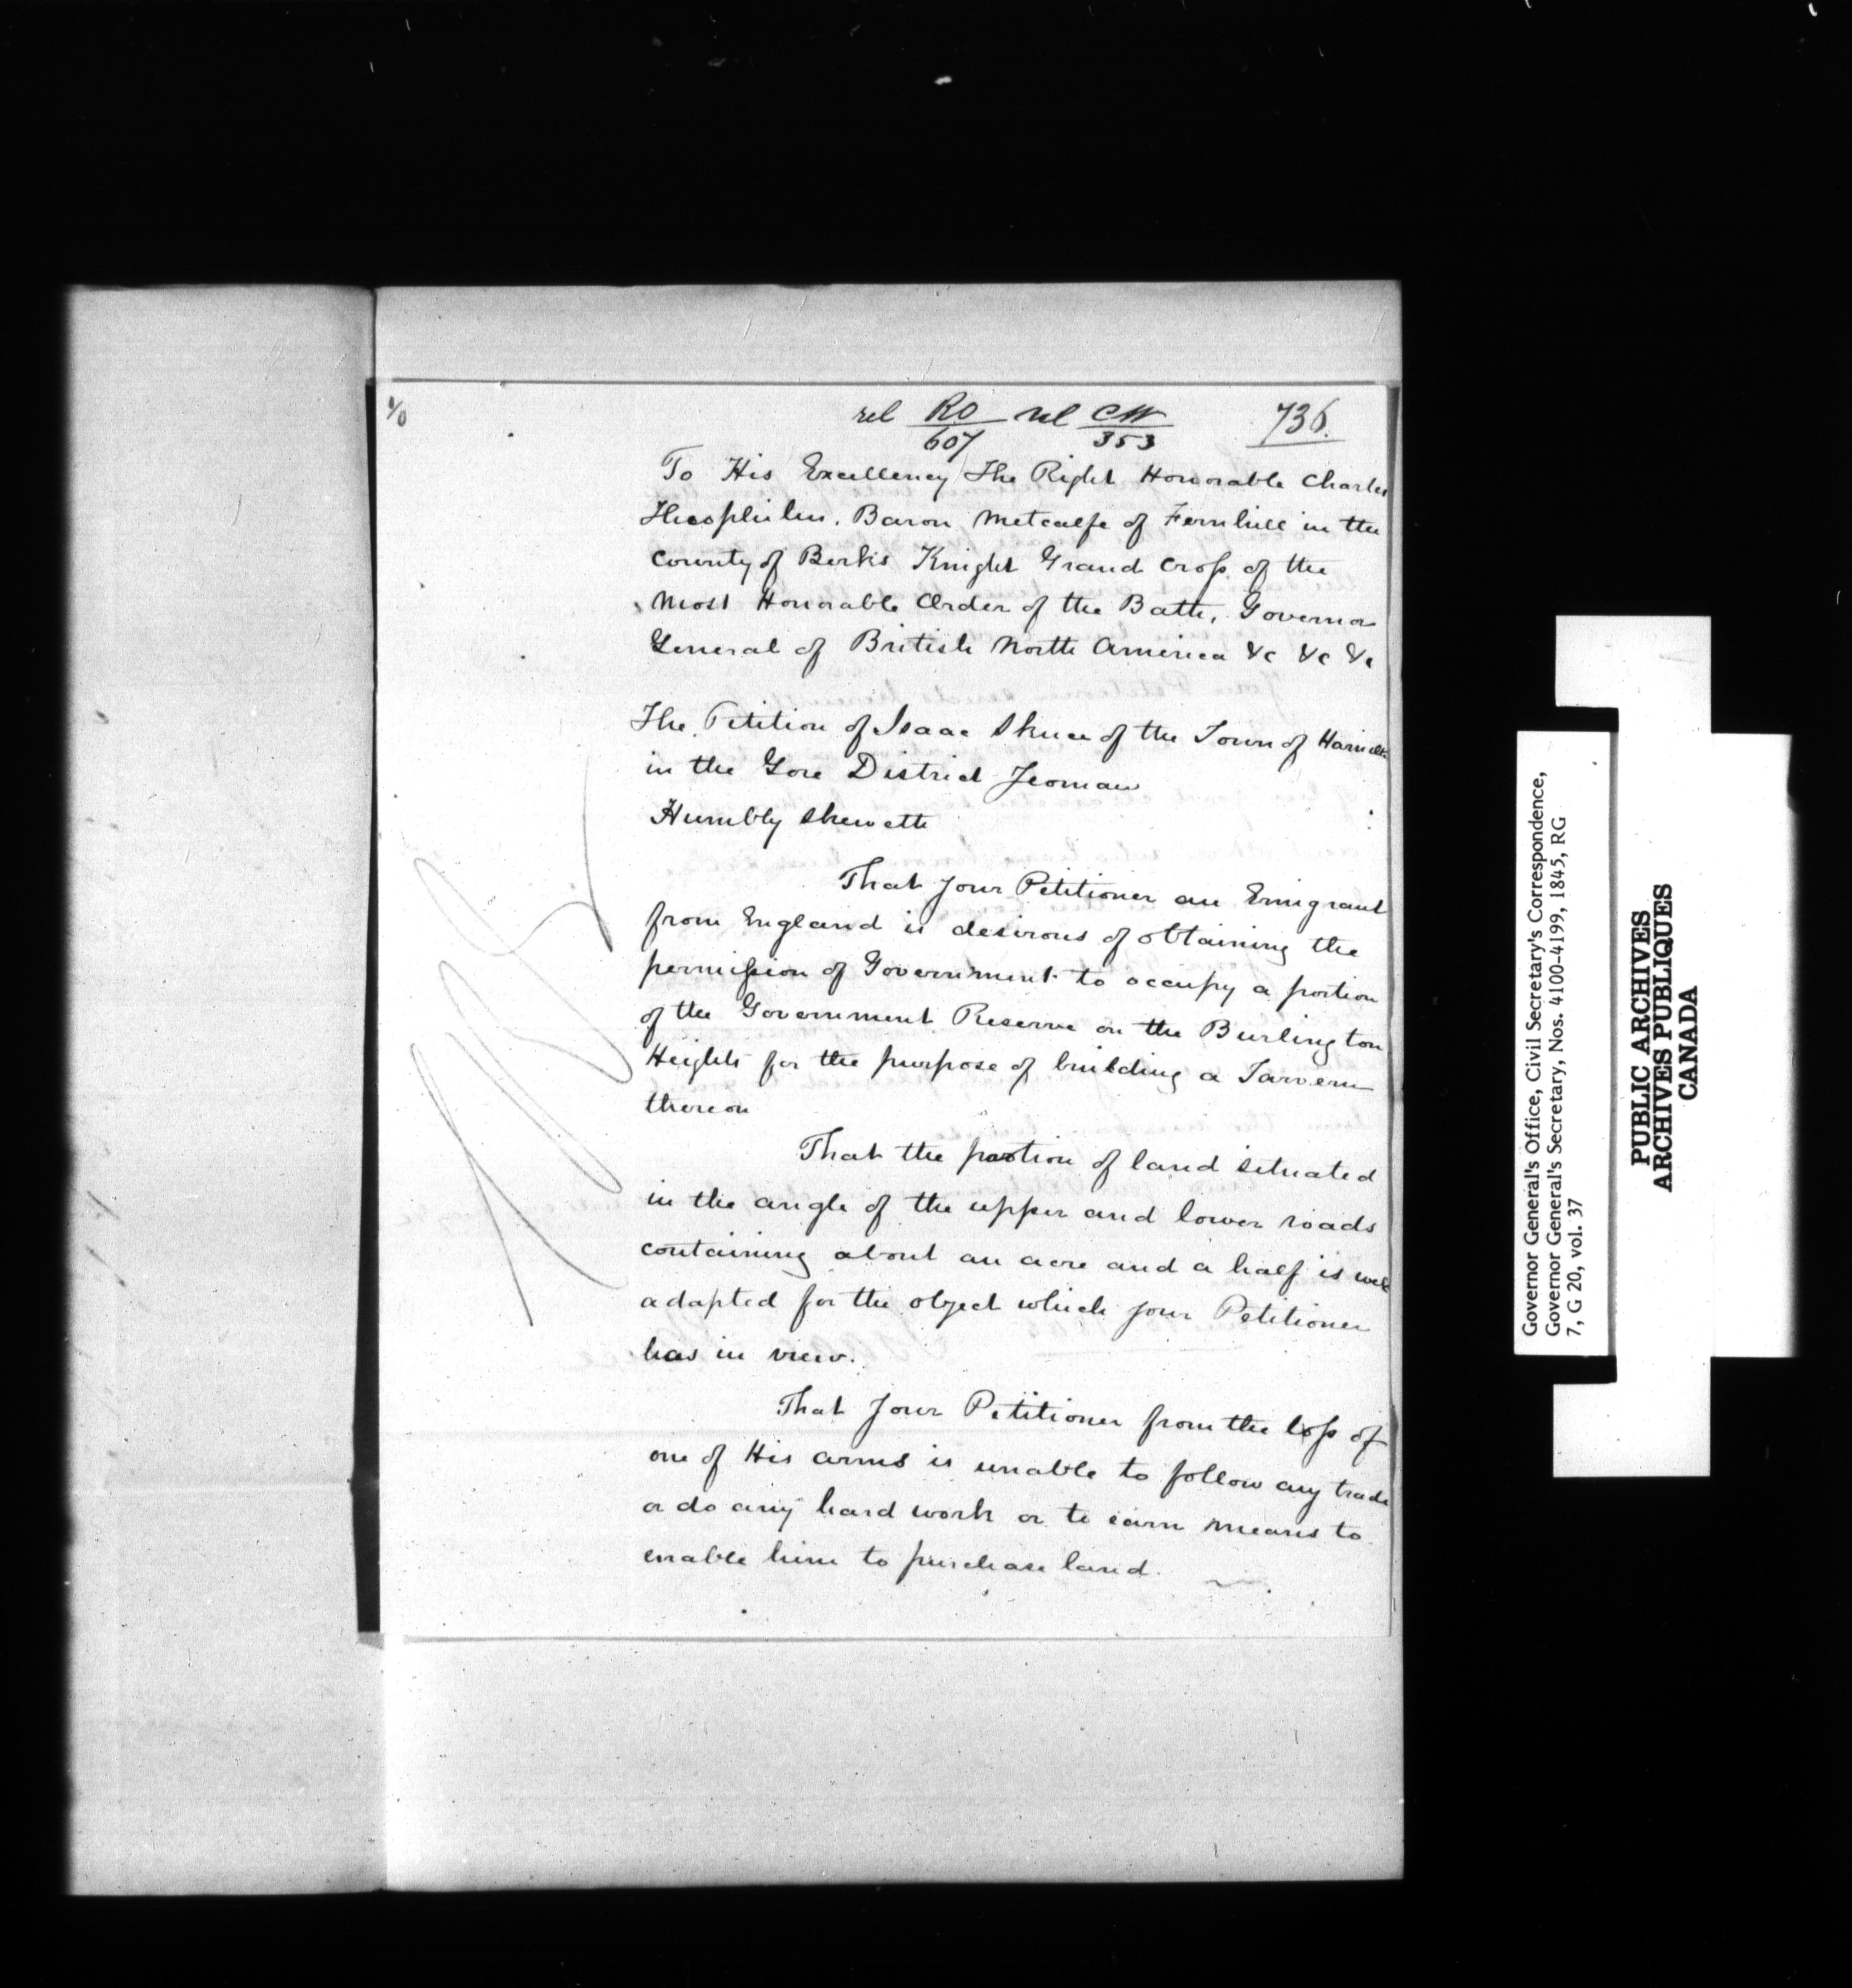 1/0
rel RO/607 rel CW/353 736.
To His Excellency The Right Honorable Charles
Theophilus, Baron Metcalfe of Fernhill in the
County of Berks Knight Grand Cross of the
Most Honorable Order of the Bath, Governor
General of British North America &c &c &c
The Petition of Isaac Skuce of the Town of Hamilton
in the Gore District Yeoman
Humbly Sheweth
That your Petitioner an Emigrant
from England is desirous of obtaining the
permission of Government to occupy a portion
of the Government Reserve on the Burlington
Heights for the purpose of building a Tavern
thereon
That the portion of land situated
in the angle of the upper and lower roads
containing about an acre and a half is well
adapted for the object which your Petitioner
has in view.
That your Petitioner from the loss of
one of His arms is unable to follow any trade
or do any hard work or to earn means to
enable him to purchase land.
Governor General's Office, Civil Secretary's Correspondence,
Governor General's Secretary, Nos. 4100-4199, 1845, RG
7, G 20, vol. 37
PUBLIC ARCHIVES
ARCHIVES PUBLIQUES
CANADA